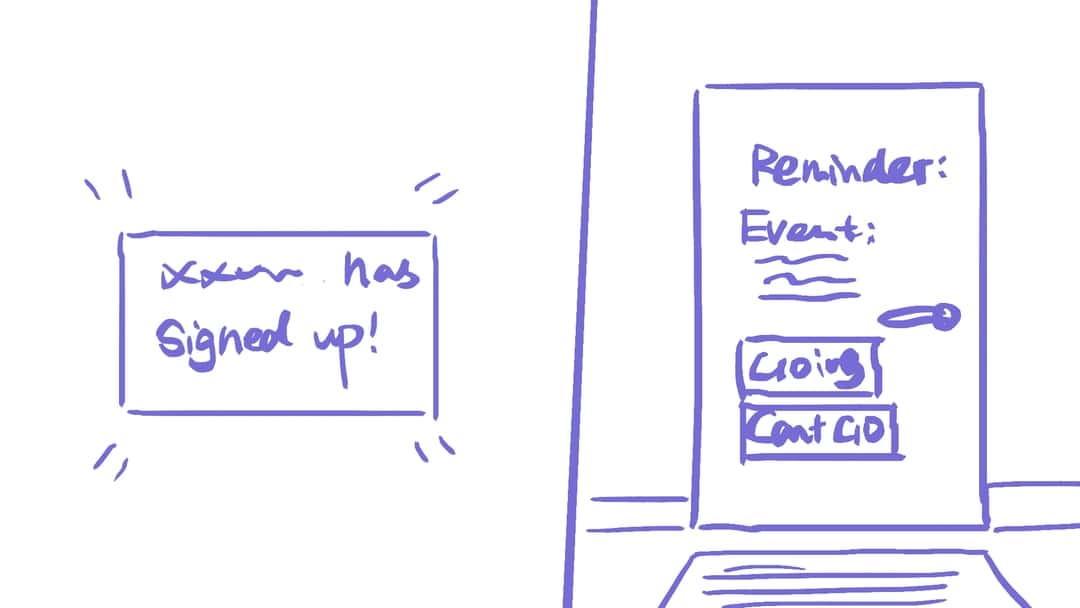 has
signed up!
Reminder:
Event:
Going
Cant GO